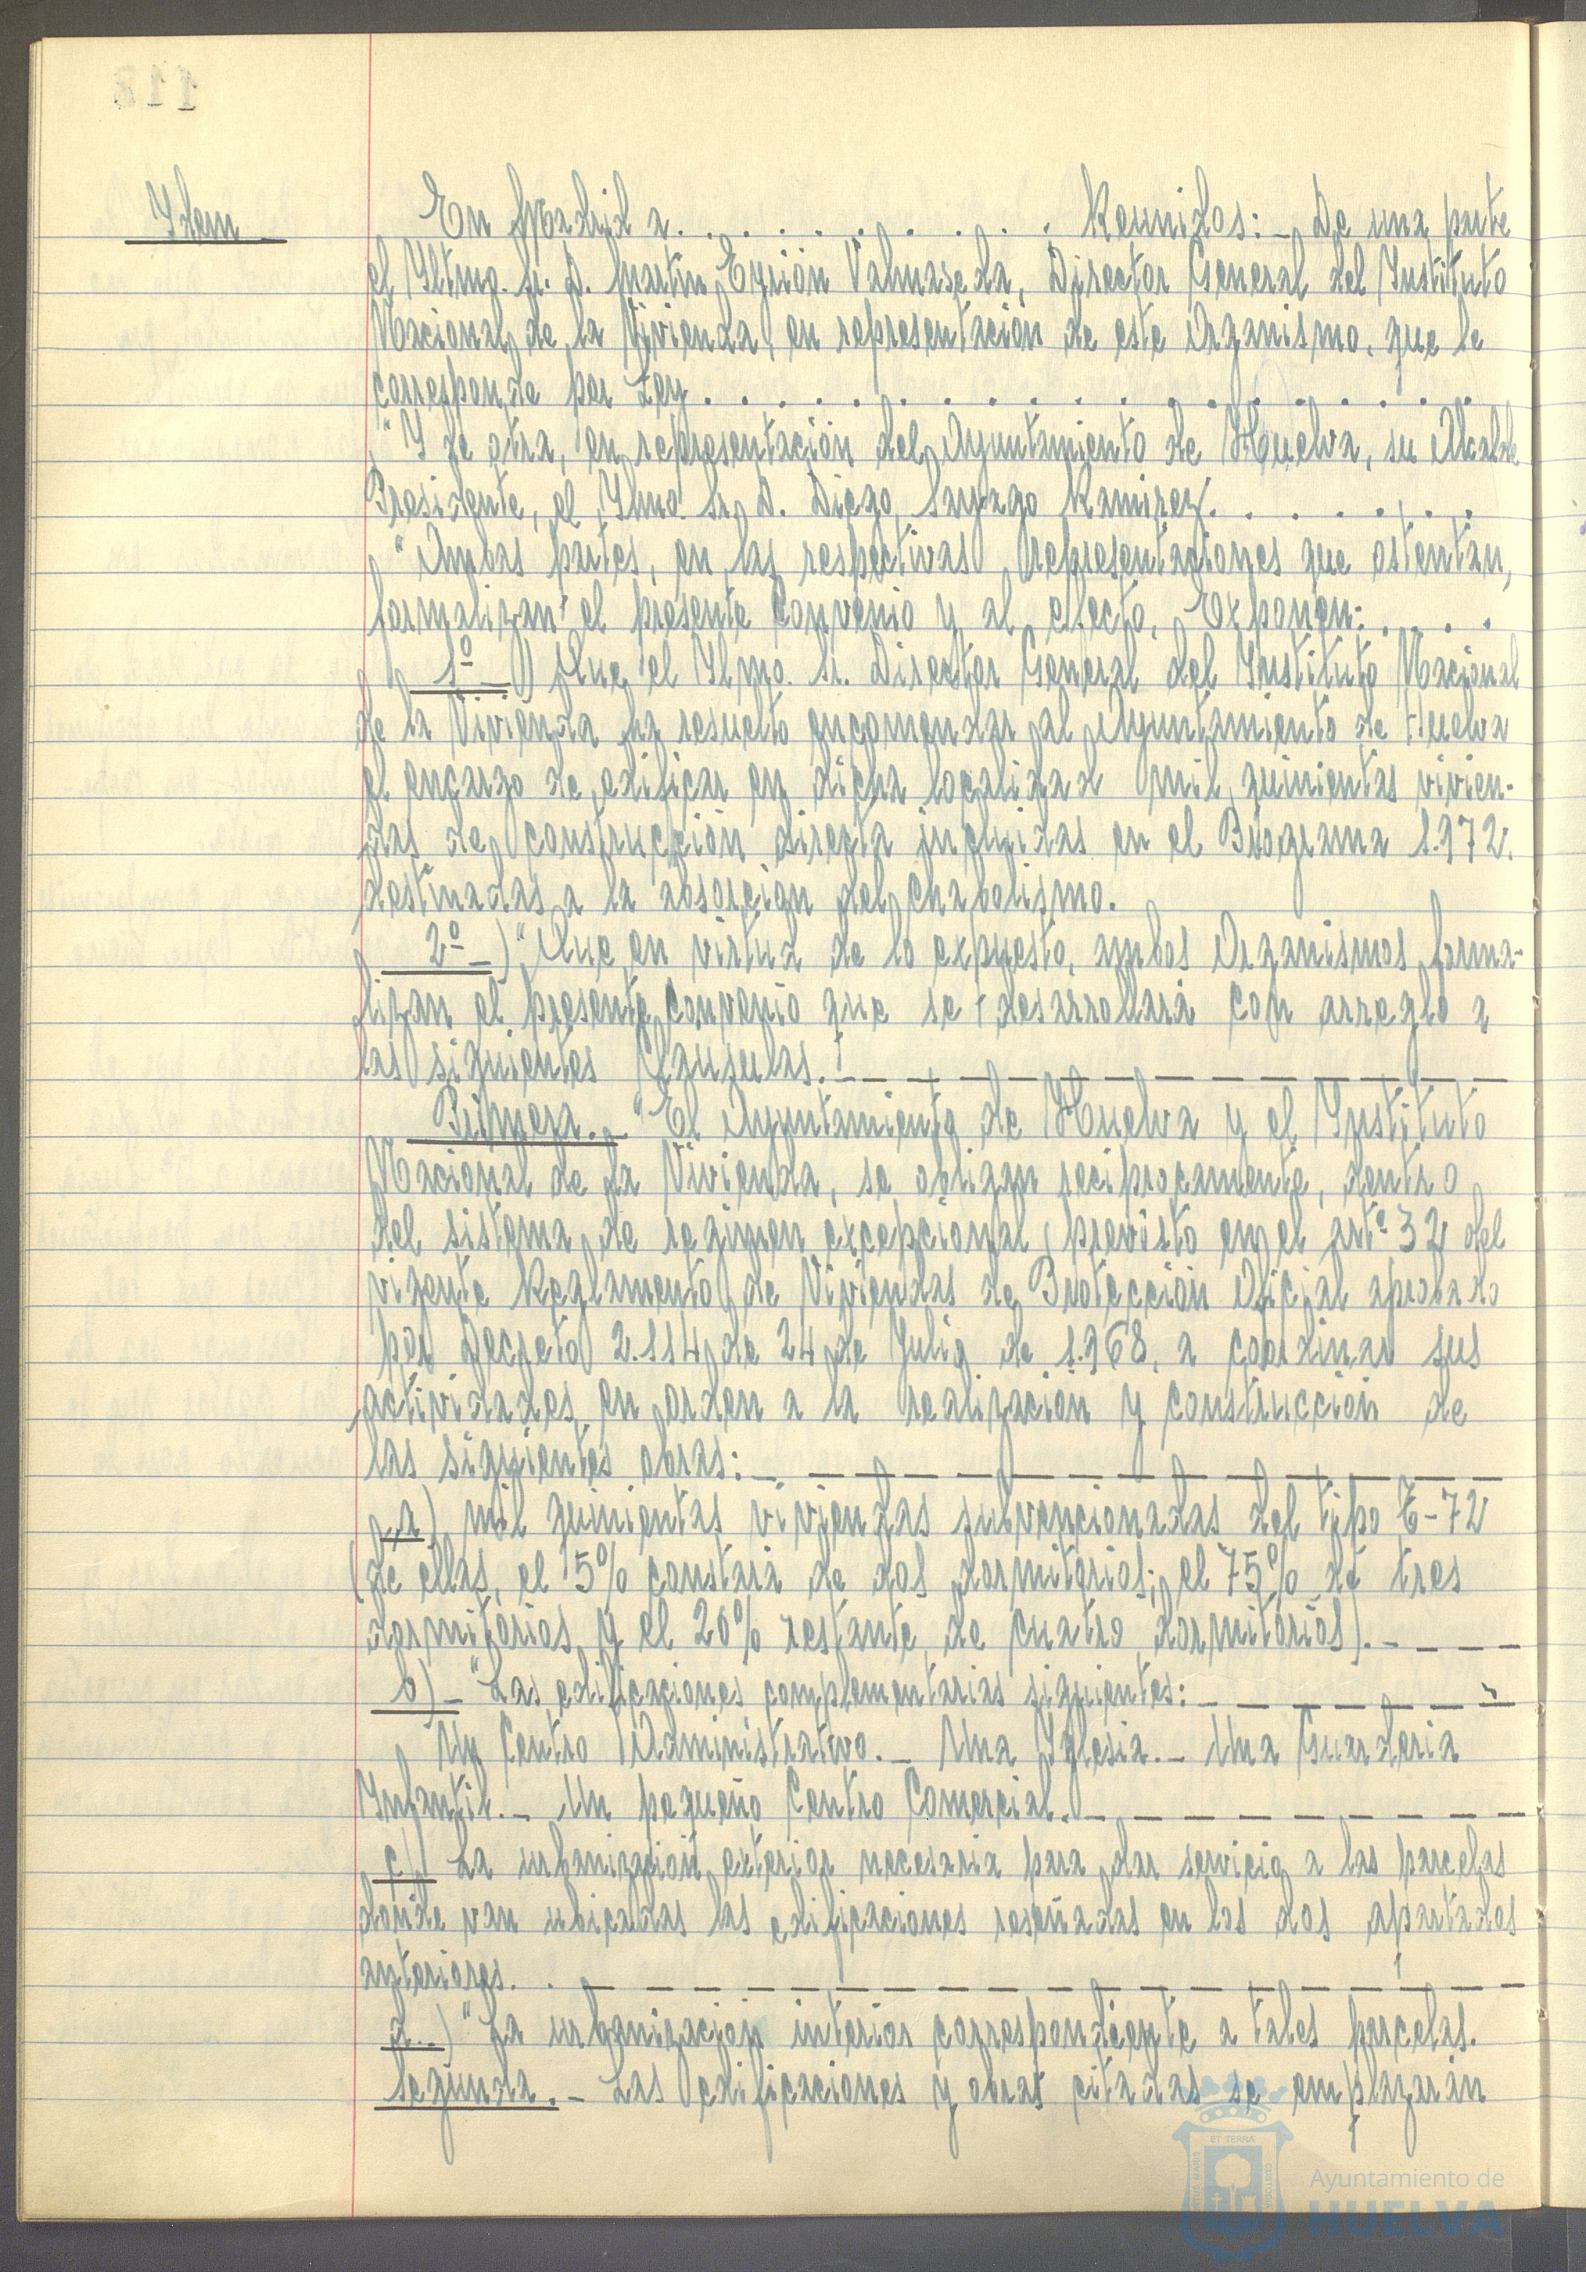 118
Idem
En Madrid a. . . . . . . . . . Reunidos:- De una parte
el Iltmo. Sr. D. Martín Eyrión Valmaseda, Director General del Instituto
Nacional de la Vivienda, en representación de este Organismo, que le
corresponde por Ley. . . . . . . . . . . . . . . . .
"Y de otra, en representación del Ayuntamiento de Huelva, su Alcalde
Presidente, el Ilmo. Sr. D. Diego Sayago Ramirez. . . . . . .
"Ambas partes, en las respectivas representaciones que ostentan,
formalizan el presente Convenio y al efecto, Exponen: . . . .
1º-) Que el Ilmo. Sr. Director General del Instituto Nacional
de la Vivienda ha resuelto encomendar al Ayuntamiento de Huelva
el encargo de edificar en dicha localidad mil quinientas vivien-
das de construcción directa incluidas en el Programa 1.972.
destinadas a la absorción del chabolismo.
2º-) "Que en virtud de lo expuesto, ambos Organismos forma-
lizan el presente convenio que se desarrollará con arreglo a
las siguientes Clausulas. - - - - - - - - - - - -
Primera.- "El Ayuntamiento de Huelva y el Instituto
Nacional de la Vivienda, se obligan reciprocamente, dentro
del sistema de regimen excepcional previsto en el artº 32 del
vigente Reglamento de Viviendas de Protección Oficial aprobado
por Decreto 2.114 de 24 de Julio de 1.968, a coordinar sus
actividades en orden a la realización y construcción de
las siguientes obras: - - - - - - - - - - - - -
a) mil quinientas viviendas subvencionadas del tipo E-72
(de ellas, el 5% constará de dos dormitorios; el 75% de tres
dormitorios y el 20% restante de cuatro dormitorios). - - - -
b)- "Las edificaciones complementarias siguientes: - - - - - - -
Un Centro Administrativo.- Una Iglesia.- Una Guarderia
Infantil.- Un pequeño Centro Comercial. - - - - - - - - -
c) La urbanización exterior necesaria para dar servicio a las parcelas
donde van ubicadas las edificaciones reseñadas en los dos apartados
anteriores. . - - - - - - - - - - - - - - - - -
d..) "La urbanización interior correspondiente a tales parcelas.
Segunda.- Las edificaciones y obras citadas se emplazarán
Ayuntamiento de
HUELVA